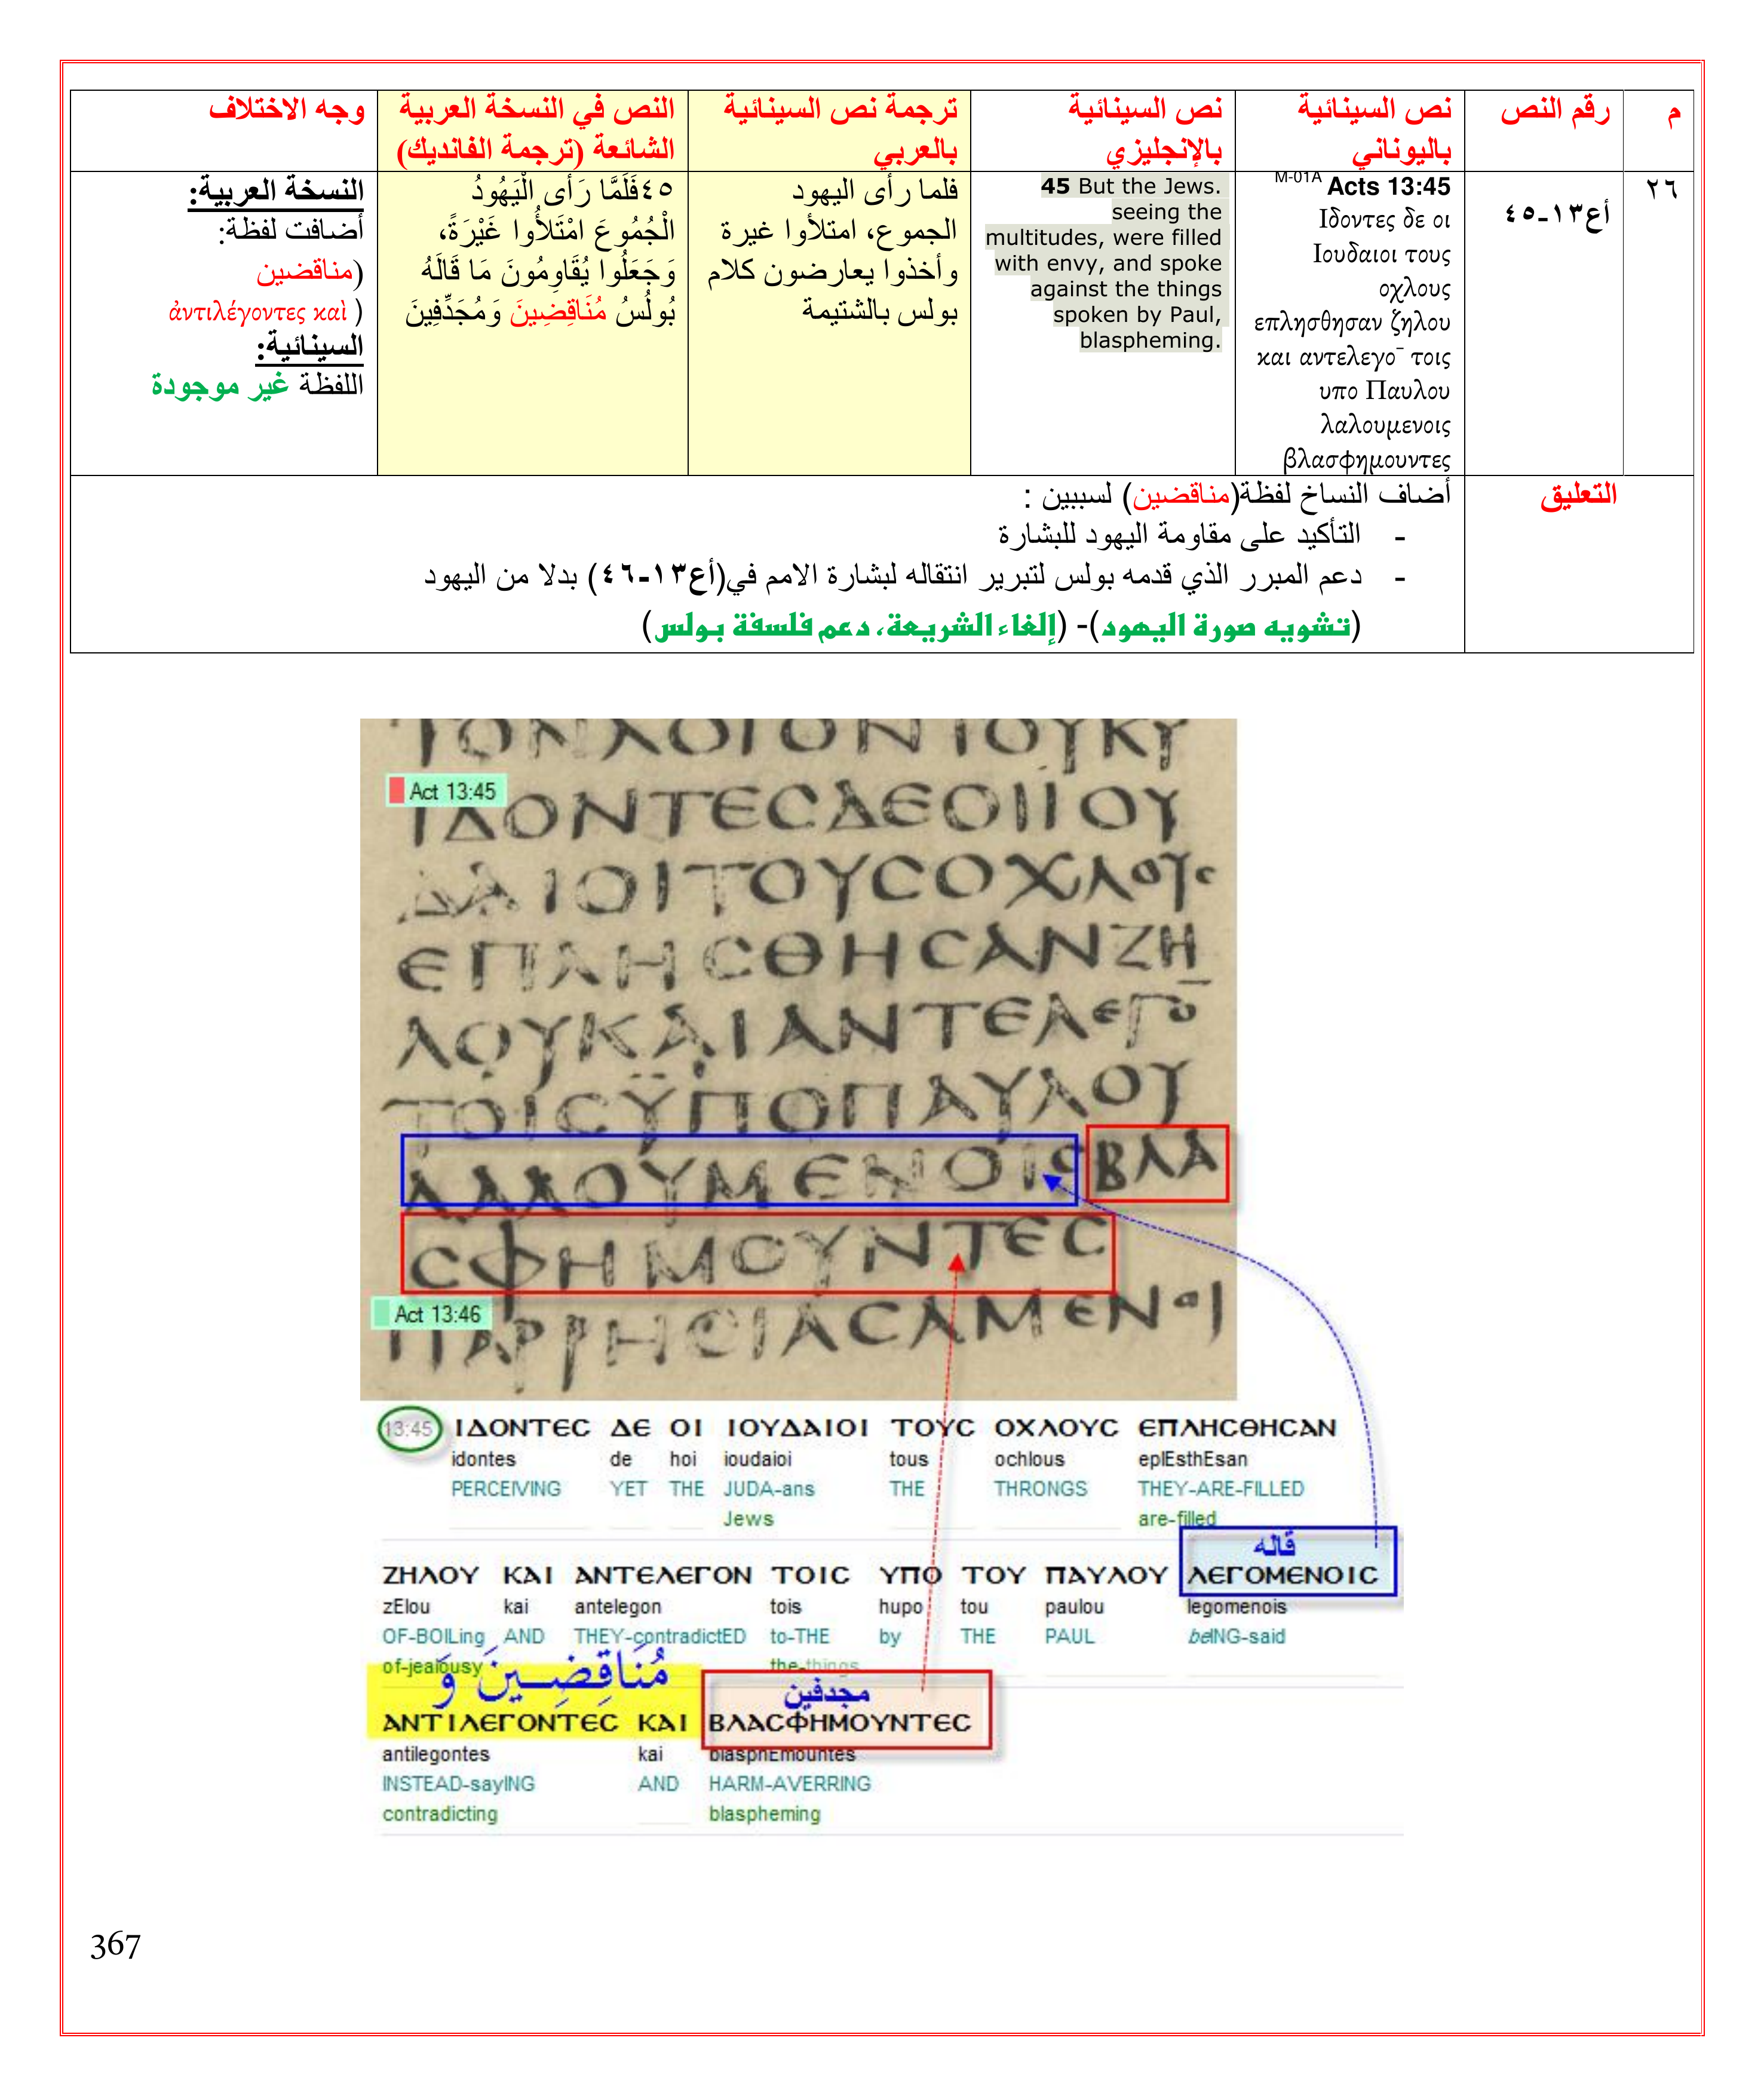 م
رقم النص
نص السينائية
باليوناني
نص السينائية
بالإنجليزي
ترجمة نص السينائية
بالعربي
النص في النسخة العربية
الشائعة (ترجمة الفانديك)
وجه الاختلاف
٢٦
أع١٣-٤٥
M-01A Acts 13:45
Ιδοντες δε οι
Ιουδαιοι τους
οχλους
επλησθησαν ζηλου
και αντελεγο¯ τοις
υπο Παυλου
λαλουμενοις
βλασφημουντες
45 But the Jews.
seeing the
multitudes, were filled
with envy, and spoke
against the things
spoken by Paul,
blaspheming.
فلما رأى اليهود
الجموع، امتلأوا غيرة
وأخذوا يعارضون كلام
بولس بالشتيمة
٤٥فَلَمَّا رَأَى الْيَهُودُ
الْجُمُوعَ امْتَلأُوا غَيْرَةً،
وَجَعَلُوا يُقَاوِمُونَ مَا قَالَهُ
بُولُسُ مُنَاقِضِينَ وَمُجَدِّفِينَ
النسخة العربية:
أضافت لفظة:
(مناقضين
ἀντιλέγοντες καὶ )
السينائية:
اللفظة غير موجودة
التعليق
أضاف النساخ لفظة(مناقضين) لسببين :
- التأكيد على مقاومة اليهود للبشارة
- دعم المبرر الذي قدمه بولس لتبرير انتقاله لبشارة الامم في(أع١٣-٤٦) بدلا من اليهود
(تشويه صورة اليهود)- (إلغاء الشريعة، دعم فلسفة بولس)
ΤΟΝΛΟΓΟΝΤΟΥΚΥ
Act 13:45
ΙΔΟΝΤΕϹΔΕΟΙΙΟΥ
ΔΑΙΟΙΤΟΥϹΟΧΛΟΥϹ
ΕΠΛΗϹΘΗϹΑΝΖΗ
ΛΟΥΚΑΙΑΝΤΕΛΕΓΟ̅
ΤΟΙϹΫΠΟΠΑΥΛΟΥ
ΛΑΛΟΥΜΕΝΟΙϹΒΛΑ
ϹΦΗΜΟΥΝΤΕϹ
Act 13:46
ΠΑΡΡΗϹΙΑϹΑΜΕΝΟΙ
13:45 ΙΔΟΝΤΕϹ ΔΕ ΟΙ ΙΟΥΔΑΙΟΙ ΤΟΥϹ ΟΧΛΟΥϹ ΕΠΛΗϹΘΗϹΑΝ
idontes de hoi ioudaioi tous ochlous eplEsthEsan
PERCEIVING YET THE JUDA-ans THE THRONGS THEY-ARE-FILLED
Jews are-filled
قاله
ΖΗΛΟΥ ΚΑΙ ΑΝΤΕΛΕΓΟΝ ΤΟΙϹ ΥΠΟ ΤΟΥ ΠΑΥΛΟΥ ΛΕΓΟΜΕΝΟΙϹ
zElou kai antelegon tois hupo tou paulou legomenois
OF-BOILing AND THEY-contradictED to-THE by THE PAUL beING-said
of-jealousy the-things
مُنَاقِضِينَ وَ مجدفين
ΑΝΤΙΛΕΓΟΝΤΕϹ ΚΑΙ ΒΛΑϹΦΗΜΟΥΝΤΕϹ
antilegontes kai blasphEmountes
INSTEAD-sayING AND HARM-AVERRING
contradicting blaspheming
367